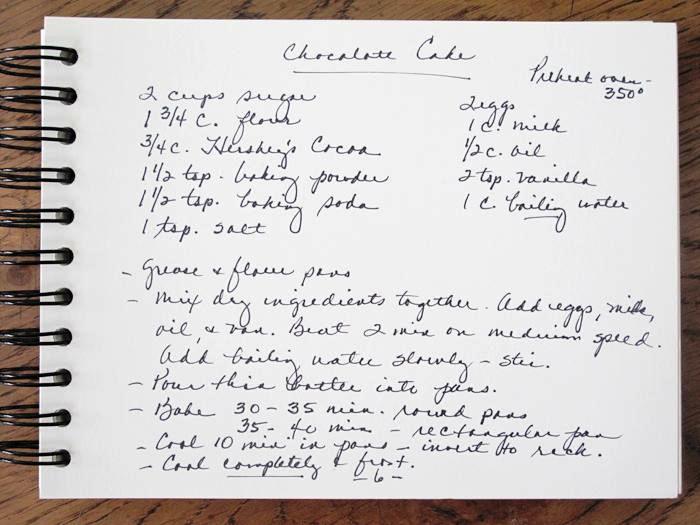 Chocolate Cake
Preheat oven -
350°
2 cups sugar
1 3/4 c. flour
3/4 c. Hershey's Cocoa
1 1/2 tsp. baking powder
1 1/2 tsp. baking soda
1 tsp. salt
2 eggs
1 c. milk
1/2 c. oil
2 tsp. vanilla
1 c. boiling water
- Grease & flour pans
- Mix dry ingredients together. Add eggs, milk,
oil, & van. Beat 2 min on medium speed.
Add boiling water slowly - stir.
- Pour thin batter into pans.
- Bake 30 - 35 min. round pans
35 - 40 min - rectangular pan
- Cool 10 min in pans - invert to rack.
- Cool completely & frost.
- 6 -